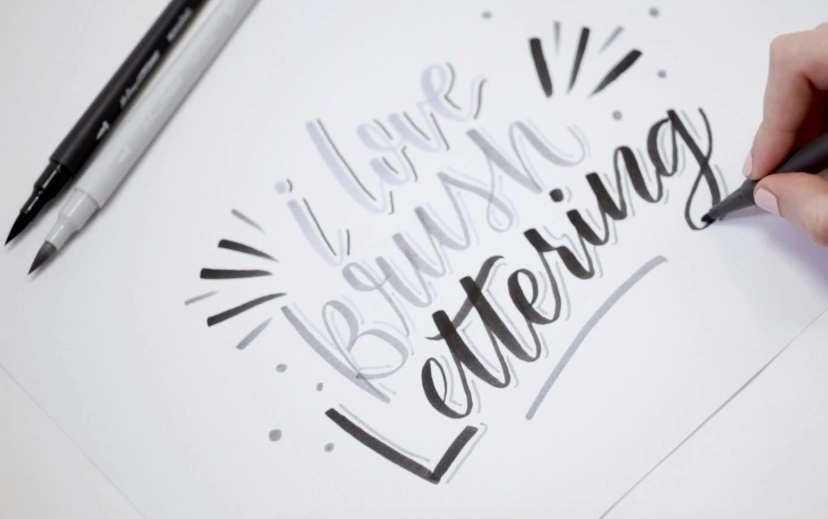 i love
Brush
Lettering